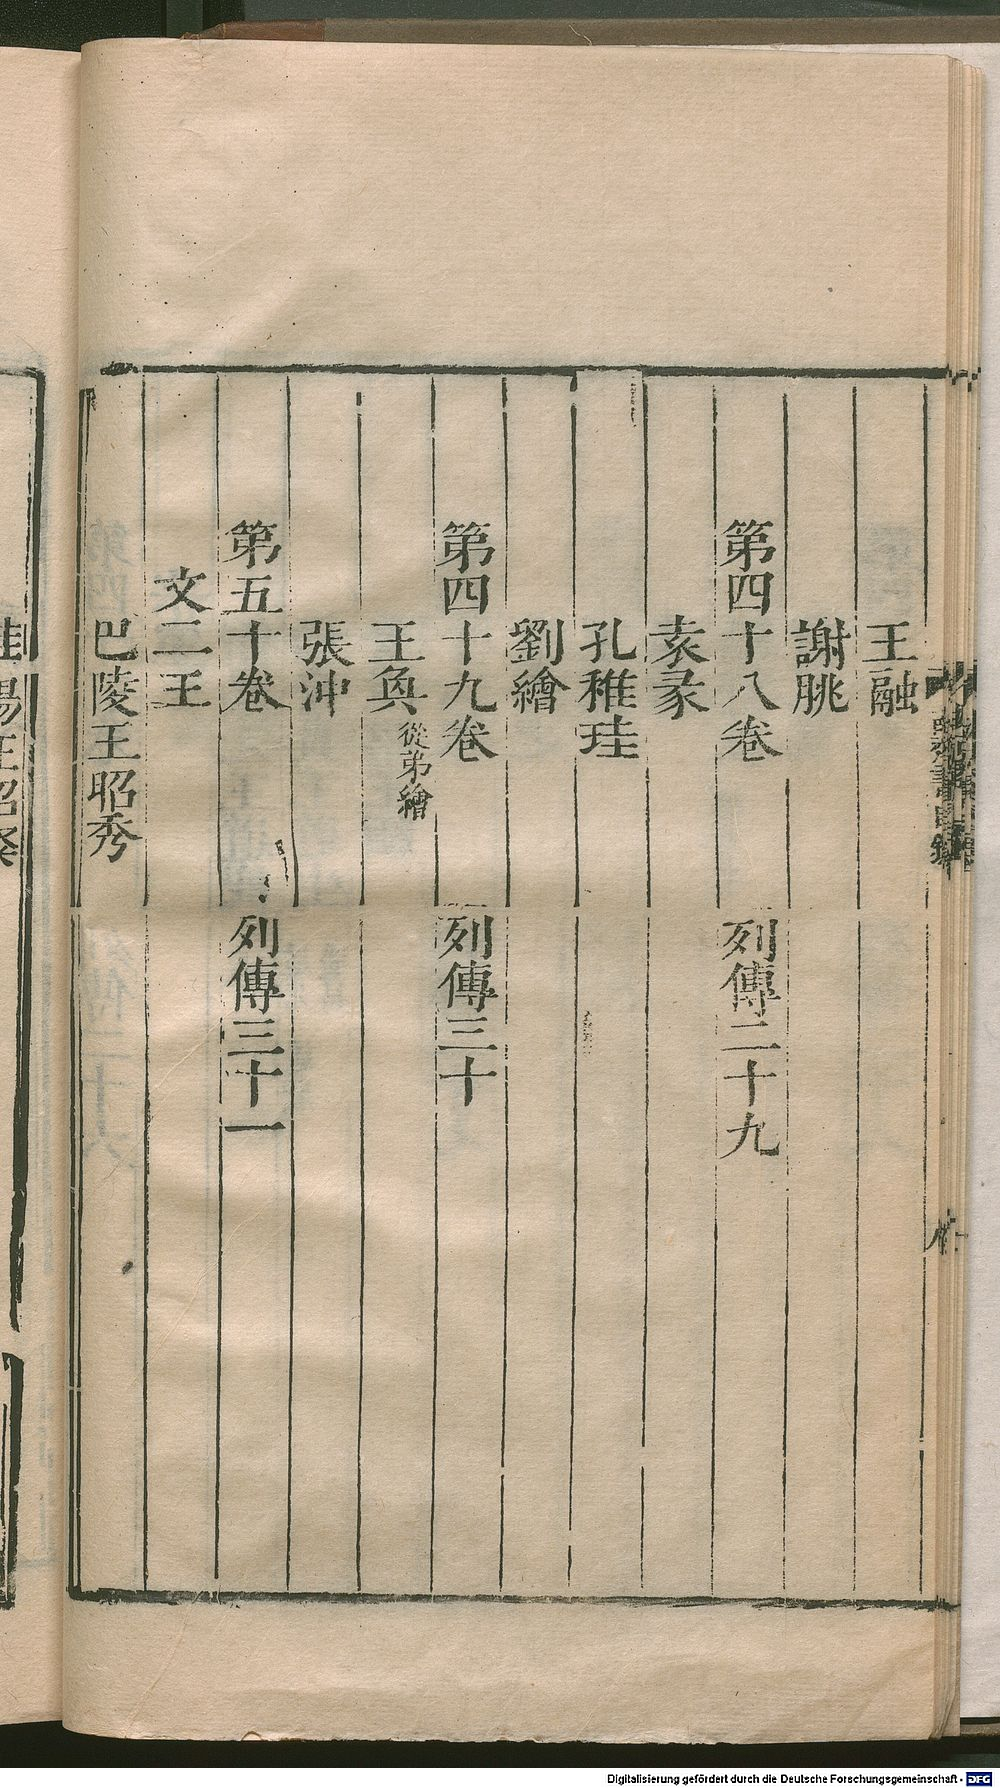 王融
謝朓
第四十八卷 列傳二十九
袁彖
孔稚珪
劉繪
第四十九卷 列傳三十
王奐 從弟繢
張沖
第五十卷 列傳三十一
文二王
巴陵王昭秀
Digitalisierung gefördert durch die Deutsche Forschungsgemeinschaft - DFG